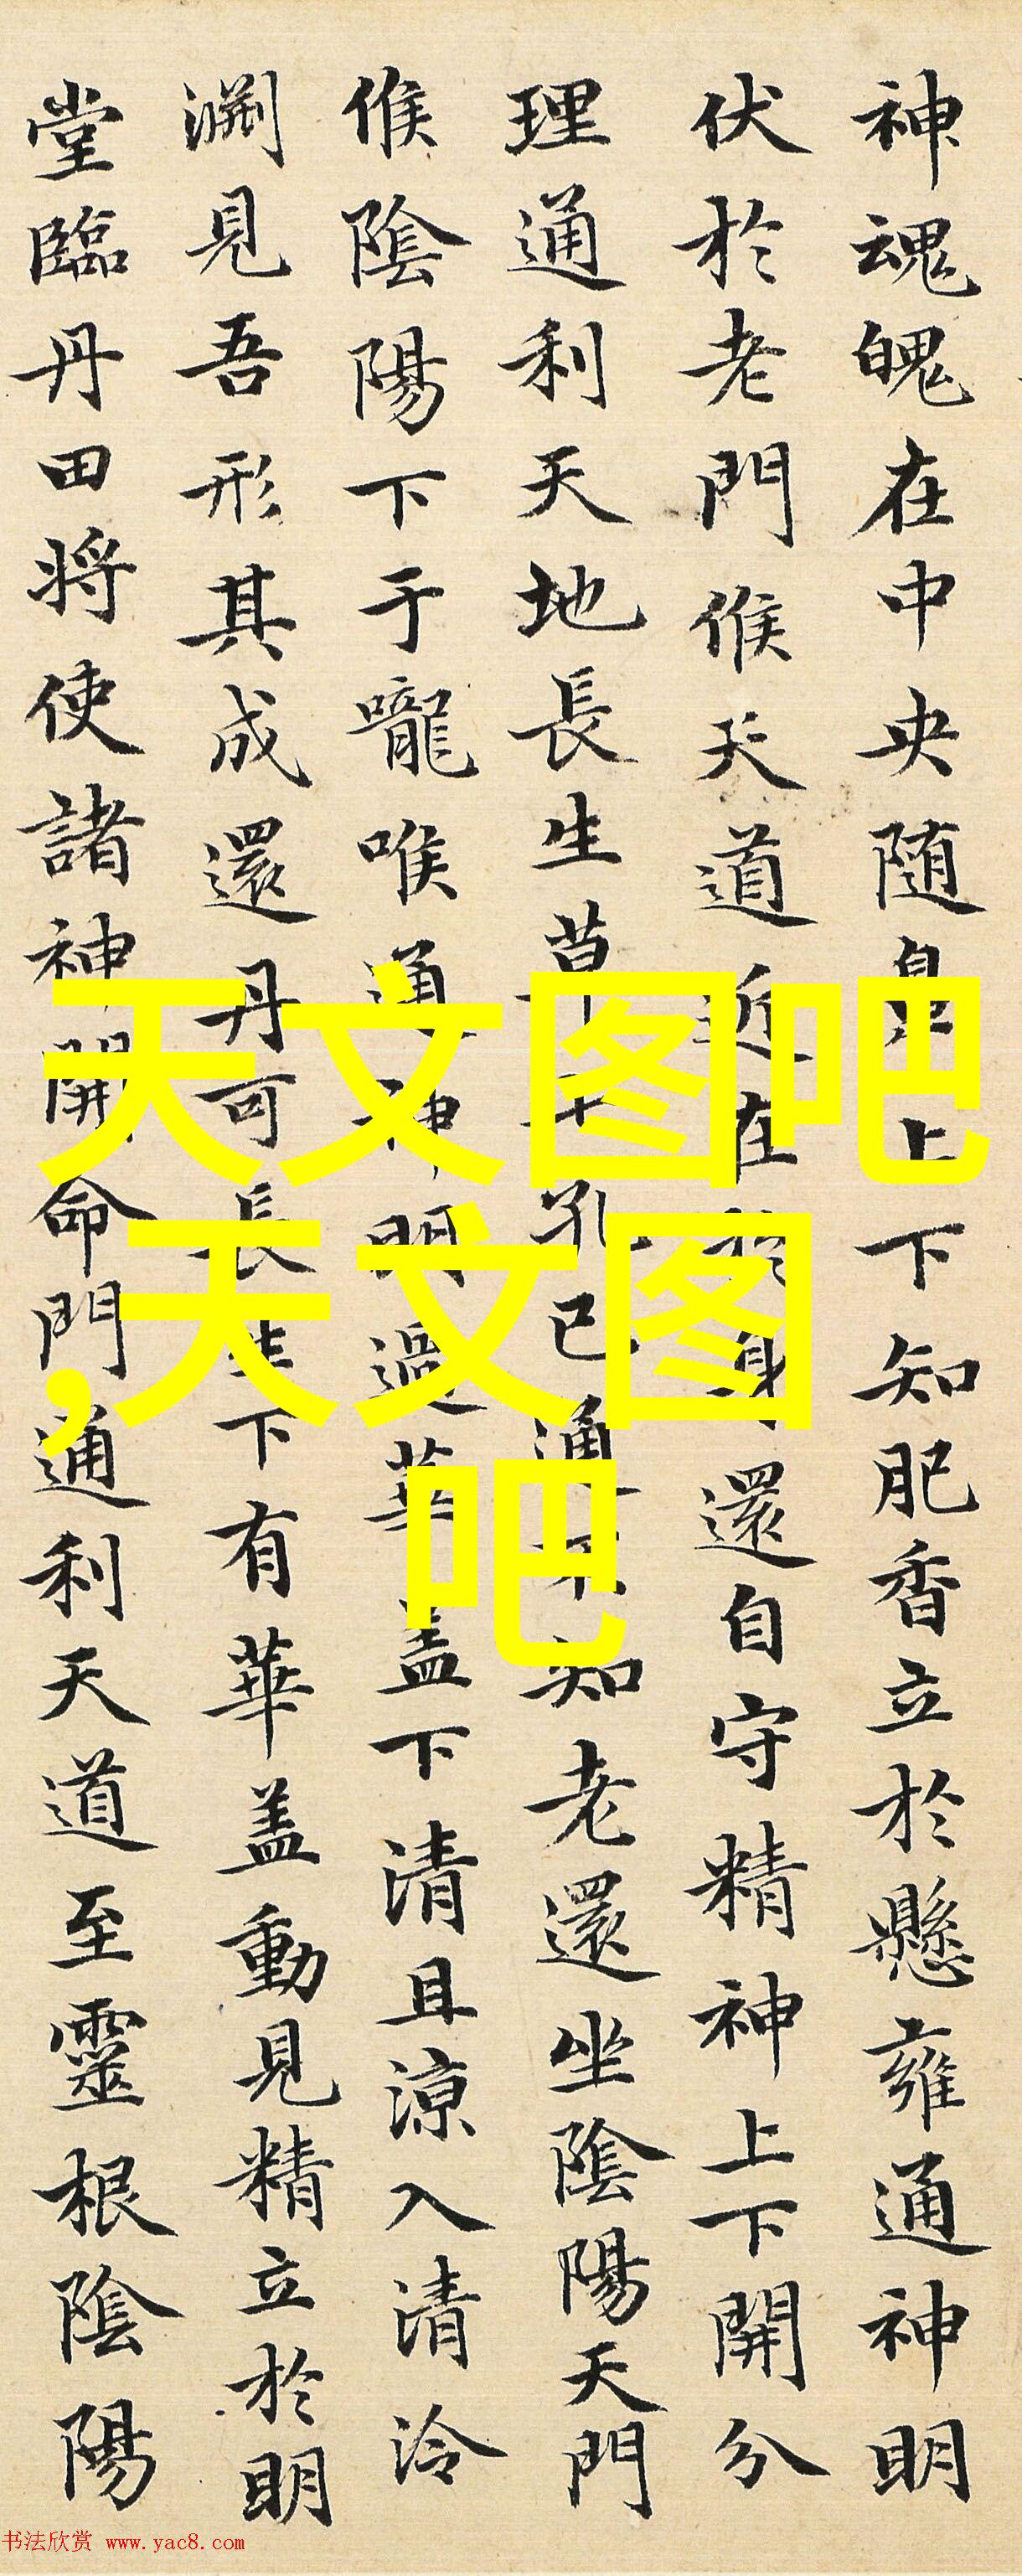 神魂魄在中央随鼻上下知肥香立於懸雍通神明
伏於老門候天道近在於身還自守精神上下開分
理通利天地長生草七孔已通不知老還坐陰陽天門
候陰陽下于嚨喉通神明過華盖下清且涼入清泠
淵見吾形其成還丹可長生下有華盖動見精立於明
堂臨丹田将使諸神開命門通利天道至靈根陰陽
天文图吧
,天文图
吧
书法欣赏 www.yac8.com